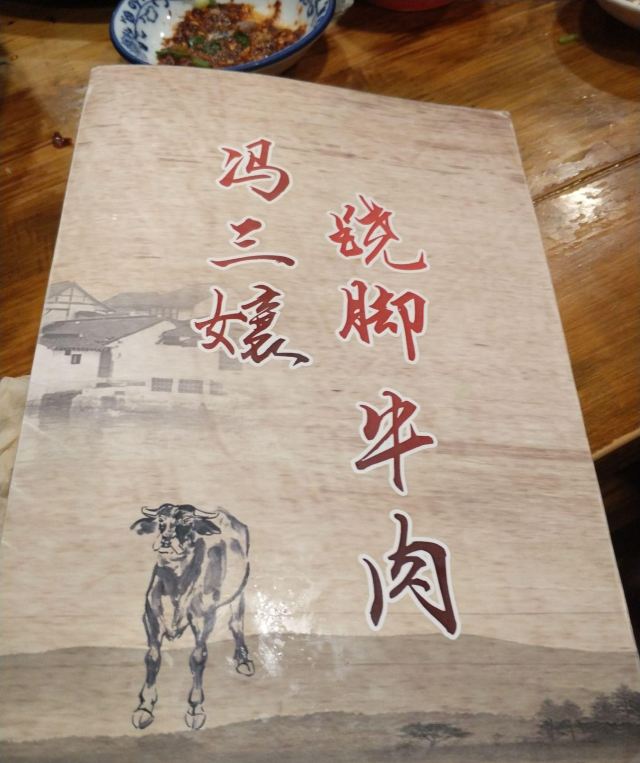 冯三孃
跷脚牛肉